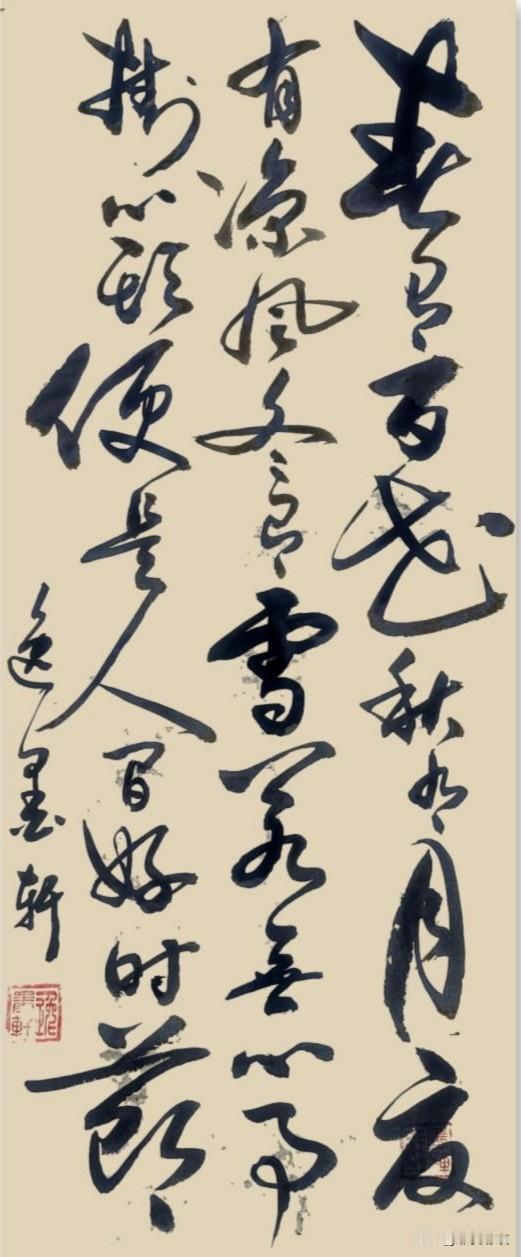 春有百花秋有月夏
有凉风冬有雪若無心事
掛心頭便是人间好时節
逸墨轩